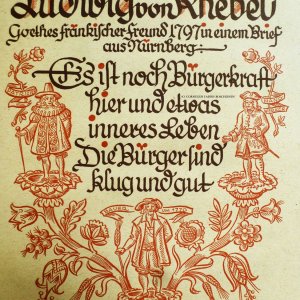 Ludwig von Knebel
Goethes fränkischer Freund 1797 in einem Brief
aus Nürnberg:
Es ist noch Bürgerkraft
hier und etwas
inneres Leben
Die Bürger sind
klug und gut